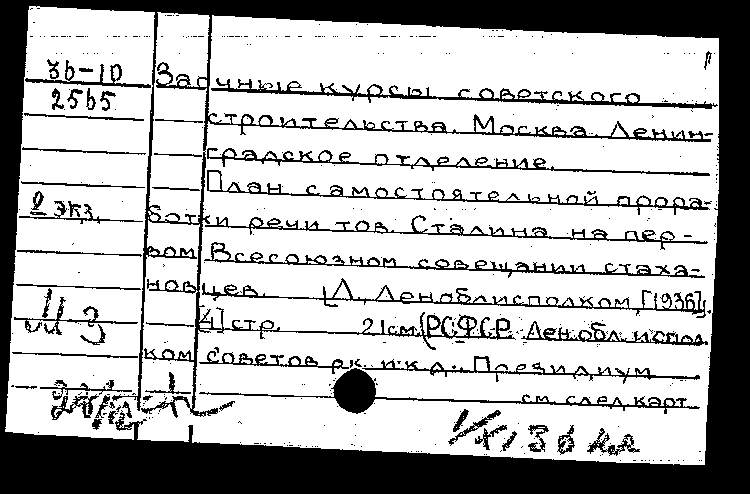 36-10
2565
Заочные курсы советского
строительства. Москва. Ленин-
градское отделение.
План самостоятельной прора-
2 экз.
ботки речи тов. Сталина на пер-
вом Всесоюзном совещании стаха-
новцев. Л., Леноблисполком, [1936].
[4] стр. 21 см. (РСФСР. Лен. обл. испол.
М 3
ком советов р.к. и к.д. Президиум
см. след. карт.